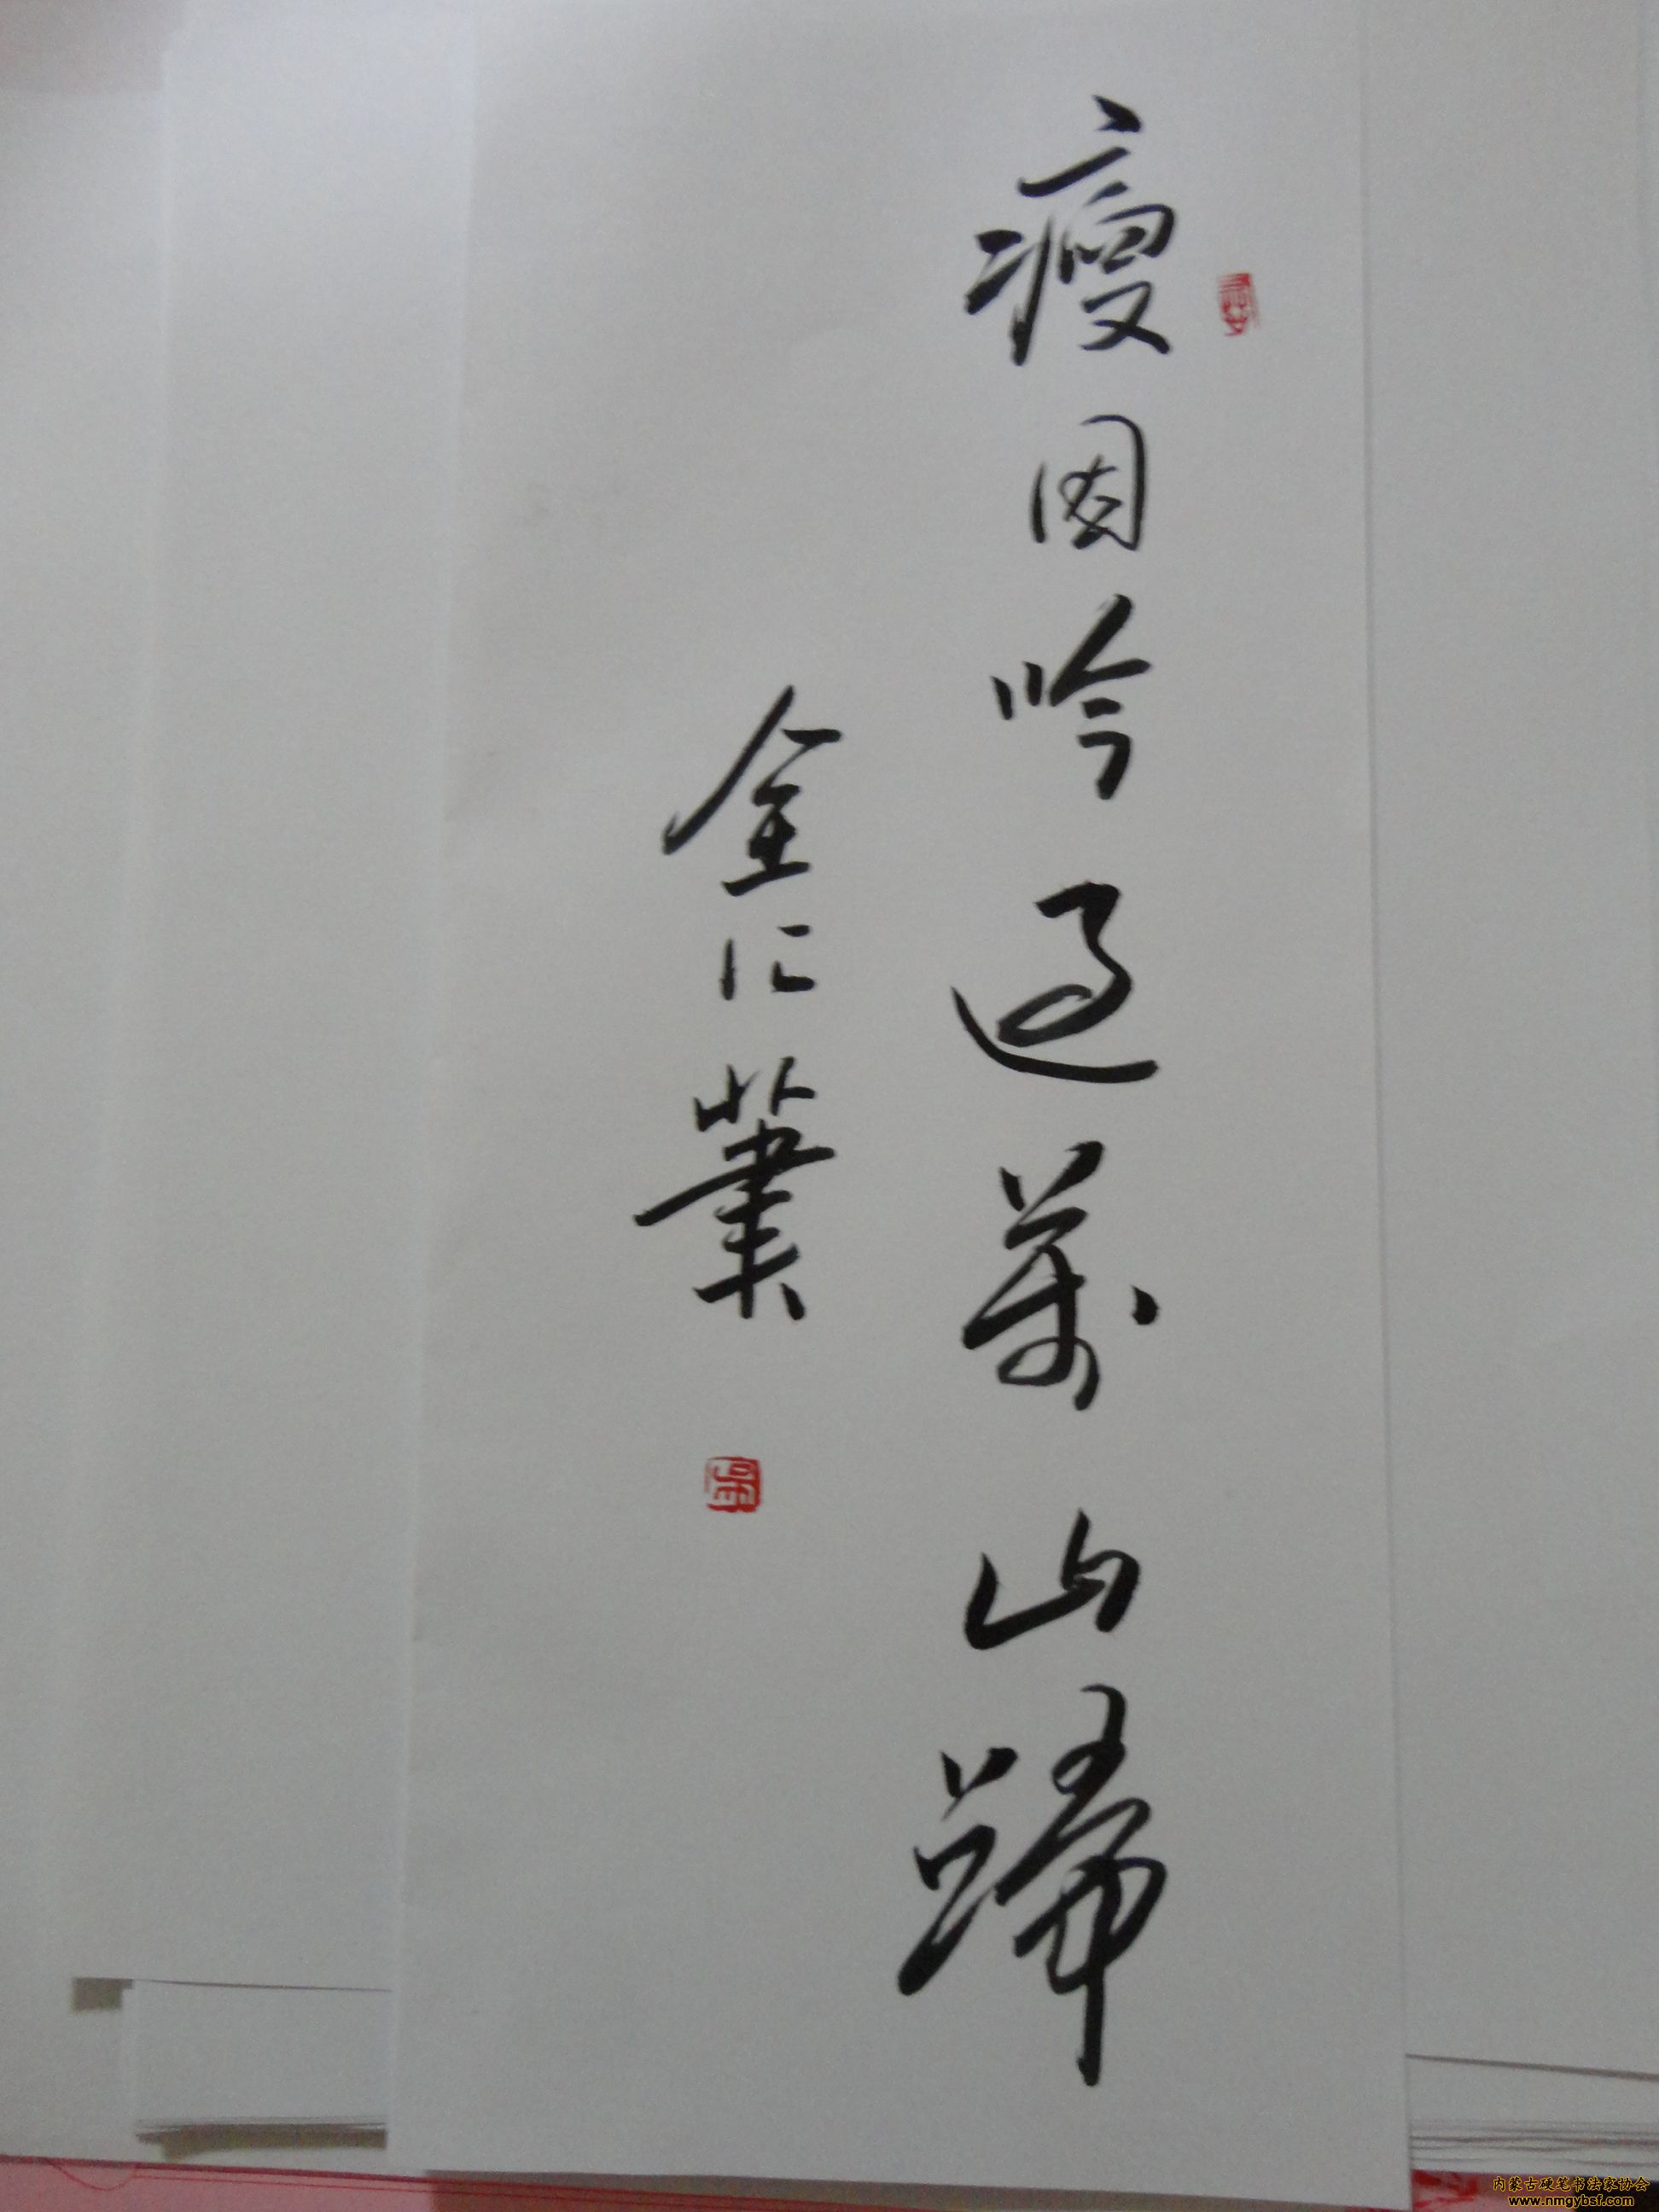 瘦因吟過萬山歸
金仁業
内蒙古硬笔书法家协会
www.nmgybsf.com